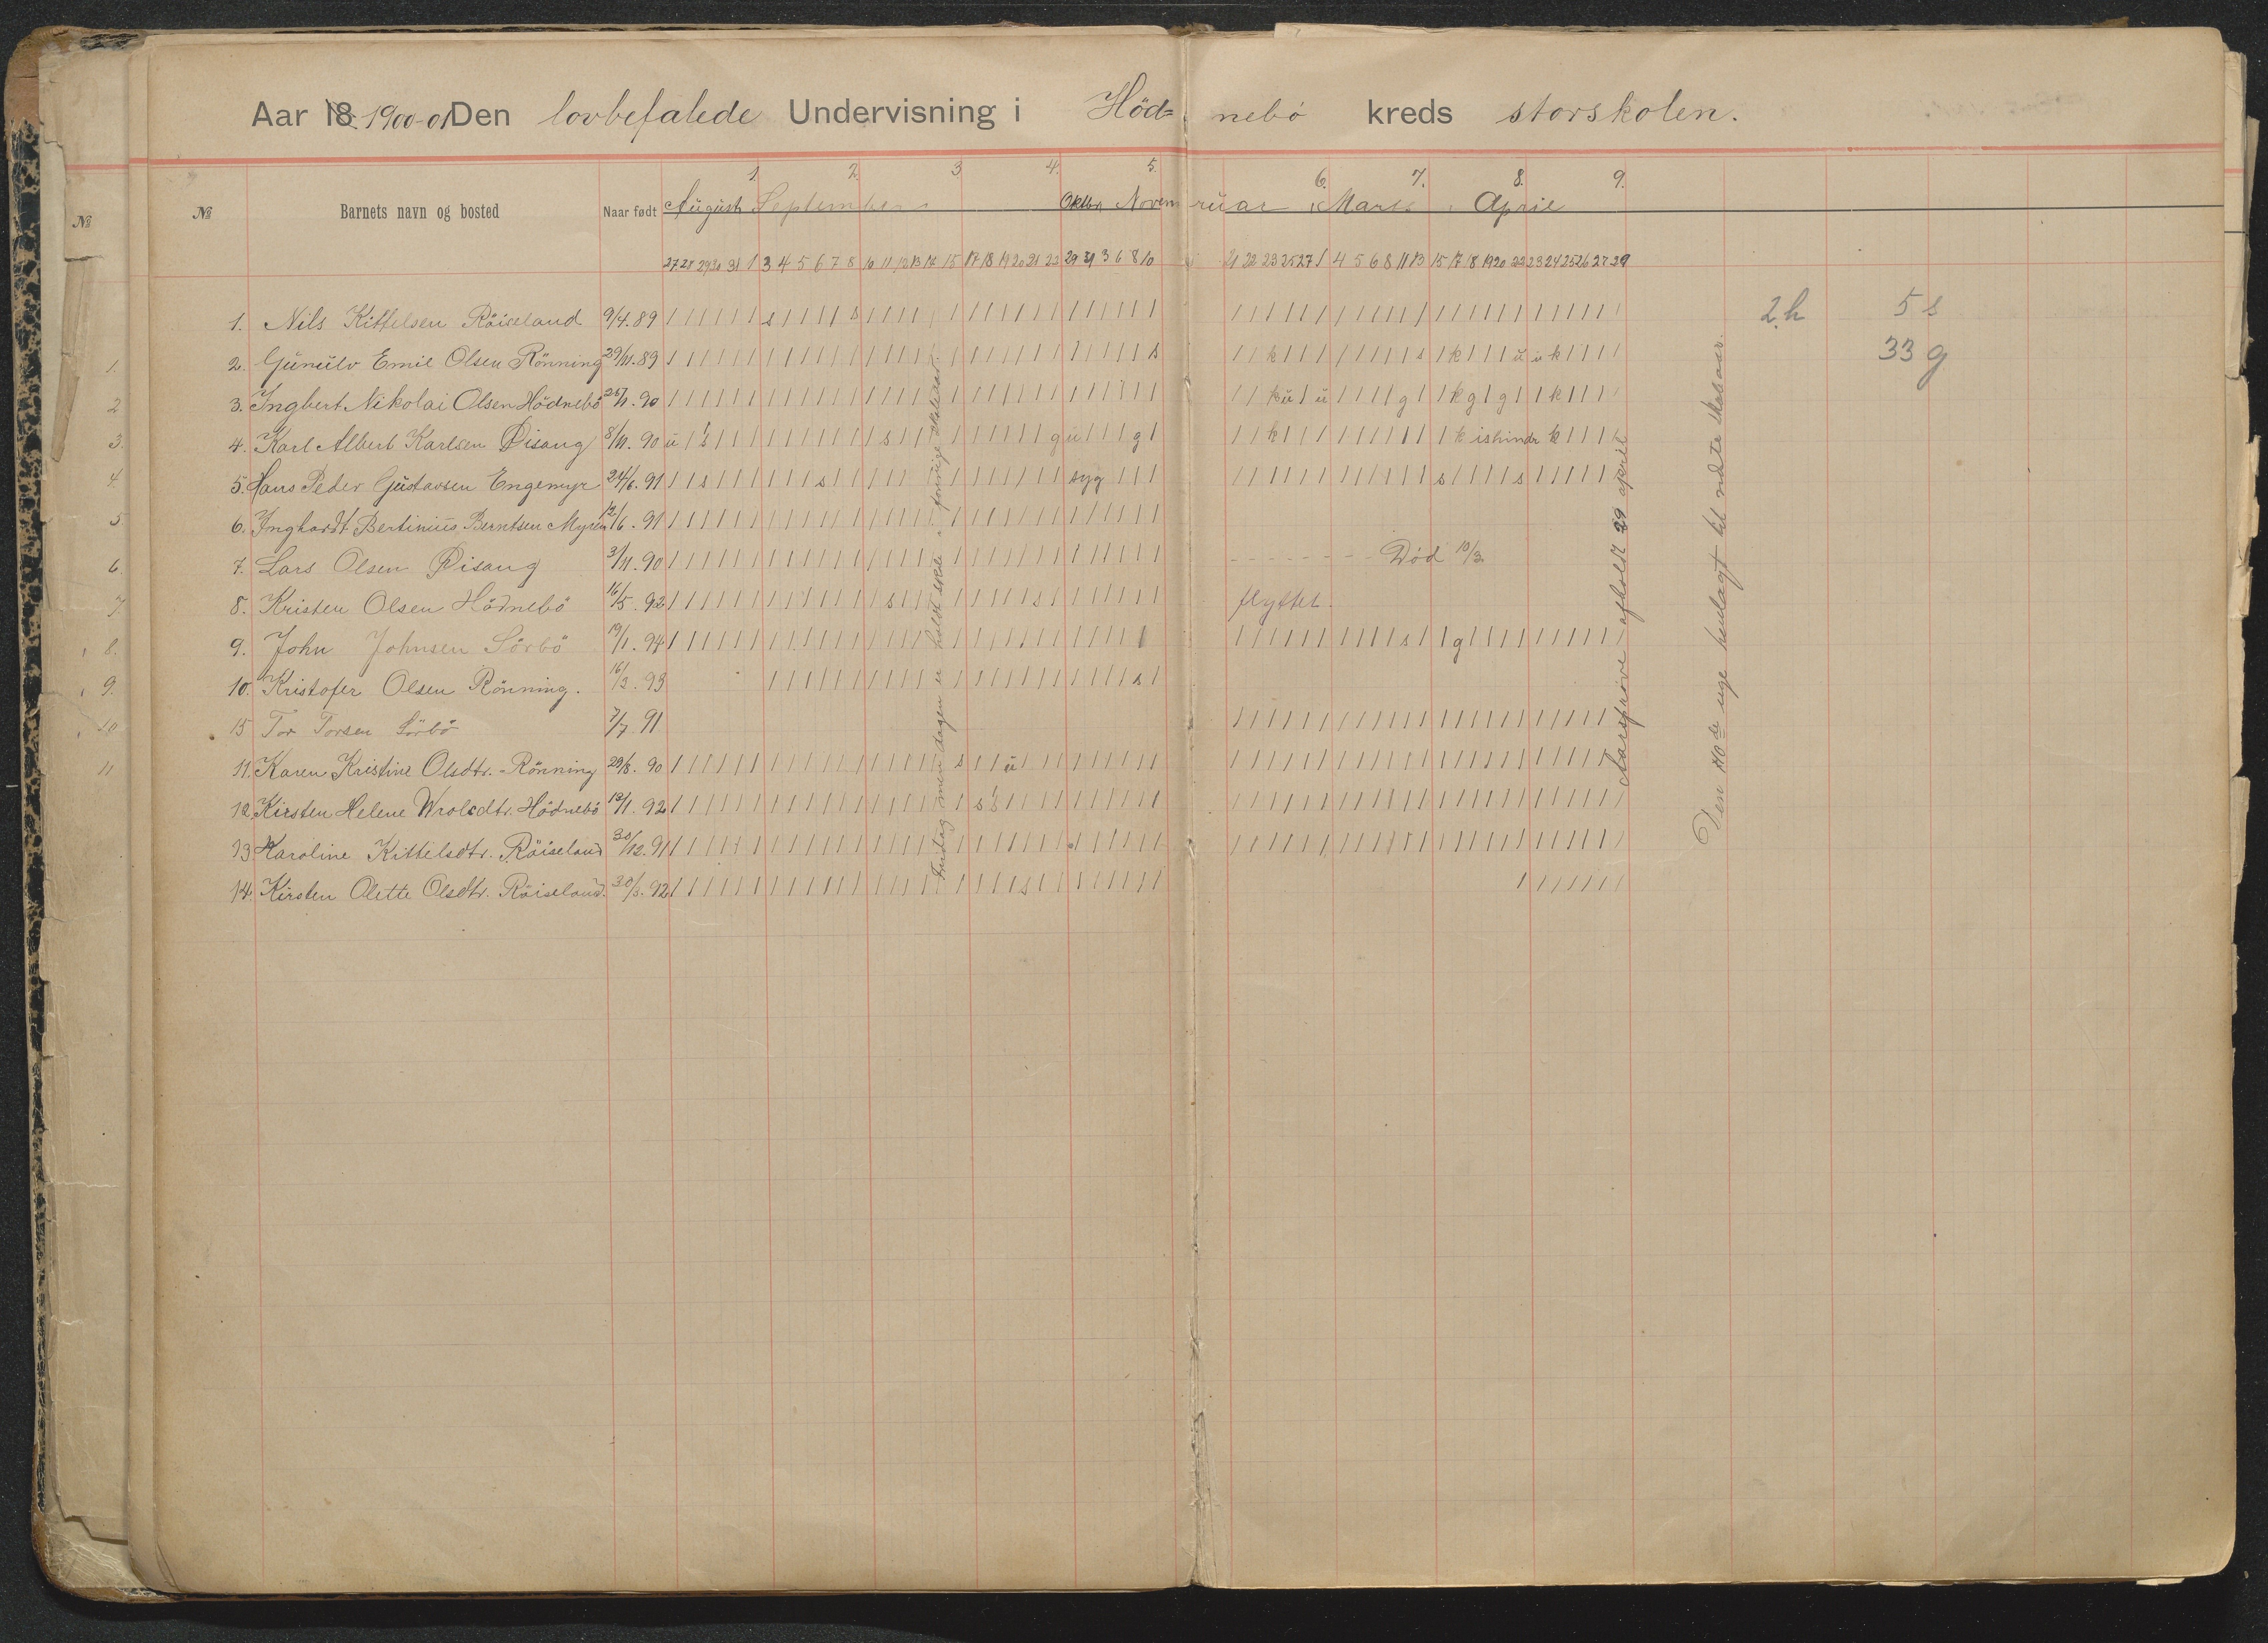 Aar 18 1900-01 Den lovbefalede Undervisning i Höd= nebö kreds storskolen.
1. 2. 3. 4. 5. 6. 7. 8. 9.
№ № Barnets navn og bosted Naar født August September Oktbr. Novem ruar Marts April
27 28 29 30 31 1 3 4 5 6 7 8 10 11 12 13 14 15 17 18 19 20 21 22 29 31 3 6 8 10 21 22 23 25 27 1 4 5 6 8 11 13 15 17 18 19 20 22 23 24 25 26 27 29
1. Nils Kittelsen Röiseland 9/4. 89 2.h 5 s
2. Gunulv Emil Olsen Rönning 29/11. 89 33 g
3. Ingbert Nikolai Olsen Hödnebö
4. Karl Albert Karlsen Øisang 8/11. 90
5. Hans Peder Gustavsen Engemyr 24/6. 91 syg
6. Inghardt Bertinius Berntsen Myren 12/6. 91
7. Lars Olsen Øisang 3/11. 90 Död 10/3
8. Kristen Olsen Hödnebö 16/5. 92 flyttet.
9. John Johnsen Sörbö 19/1. 94
10. Kristofer Olsen Rönning. 16/2. 93
15 Tor Torsen Sörbö 7/7. 91
11. Karen Kristine Olsdtr. Rönning 29/8. 90
12. Kirsten Helene Wrolsdtr. Hödnebö 13/1. 92
13 Karoline Kittelsdtr. Röiseland 30/12. 91
14. Kirsten Olette Olsdtr. Röiseland. 30/3. 92
1.
2
3.
4.
5.
6.
7
8.
9.
10
11
Fridag men dagen er holdt skole i forrige skoleaar.
Aarsprøve afholdt 29 april
Den 10de uge henlagt til næste skoleaar.